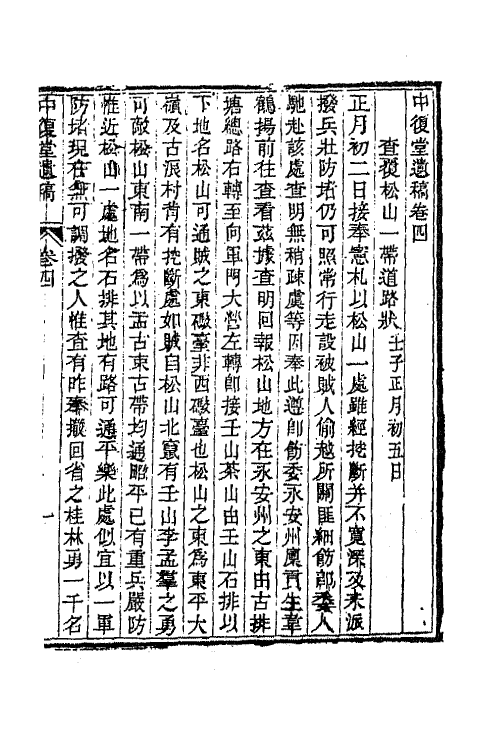 中復堂遺稿卷四
查覆松山一帶道路狀 壬子正月初五日
正月初二日接奉憲札以松山一處雖經挖斷并不寬深及未派
撥兵壯防堵仍可照常行走設被賊人偷越所關匪細飭卽委人
馳赴該處查明無稍疎虞等因奉此遵卽飭委永安州廩貢生韋
鶴揚前往查看茲據查明回報松山地方在永安州之東由古排
塘總路右轉至向軍門大營左轉卽接壬山茶山由壬山石排以
下地名松山可通賊之東礮臺非西礮臺也松山之東爲東平大
嶺及古浪村背有挖斷處如賊自松山北竄有壬山李孟羣之勇
可敵松山東南一帶爲以孟古東古帶均通昭平已有重兵嚴防
惟近松山一處地名石排其地有路可通平樂此處似宜以一軍
防堵現在無可調撥之人惟查有昨奉撤回省之桂林勇一千名
中復堂遺稿 卷四 一